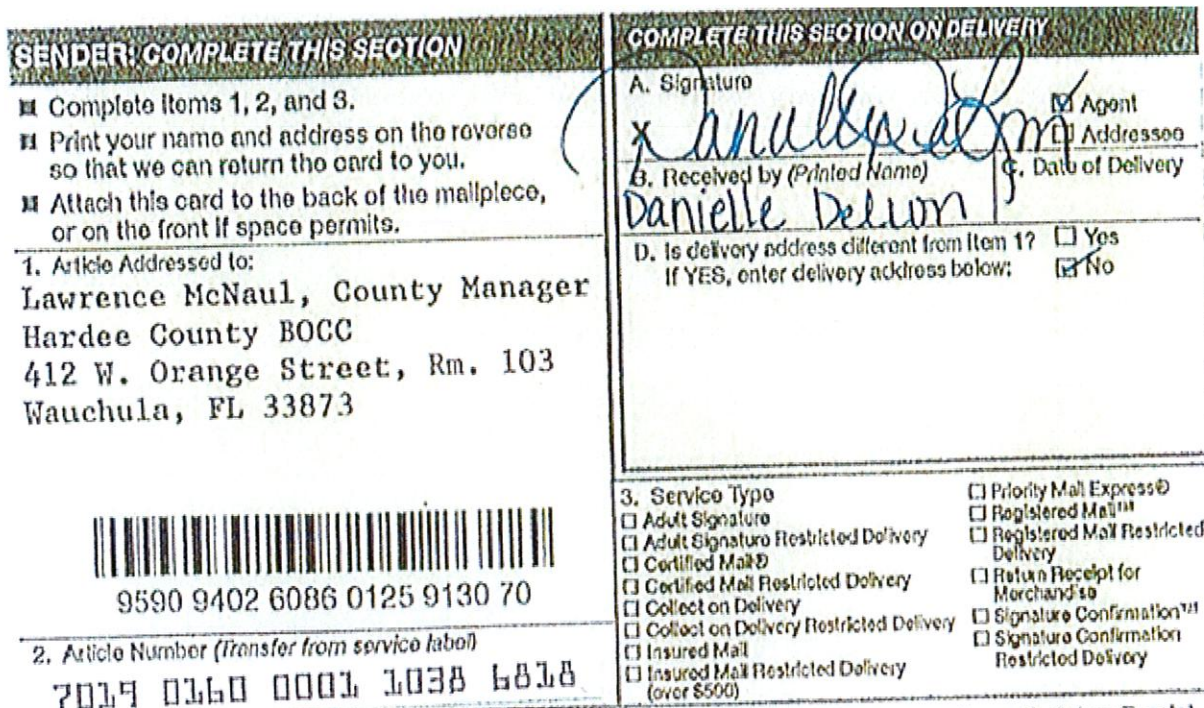 SENDER: COMPLETE THIS SECTION
Complete items 1, 2, and 3.
Print your name and address on the reverse
so that we can return the card to you.
Attach this card to the back of the mailpiece,
or on the front if space permits.
1. Article Addressed to:
Lawrence McNaul, County Manager
Hardee County BOCC
412 W. Orange Street, Rm. 103
Wauchula, FL 33873
9590 9402 6086 0125 9130 70
2. Article Number (Transfer from service label)
7019 0160 0001 1038 6818
COMPLETE THIS SECTION ON DELIVERY
A. Signature
X
☑ Agent
☐ Addressee
B. Received by (Printed Name)
C. Date of Delivery
Danielle
D. Is delivery address different from item 1? ☐ Yes
If YES, enter delivery address below: ☑ No
3. Service Type
☐ Adult Signature
☐ Adult Signature Restricted Delivery
☐ Certified Mail®
☐ Certified Mail Restricted Delivery
☐ Collect on Delivery
☐ Collect on Delivery Restricted Delivery
☐ Insured Mail
☐ Insured Mail Restricted Delivery
(over $500)
☐ Priority Mail Express®
☐ Registered Mail™
☐ Registered Mail Restricted
Delivery
☐ Return Receipt for
Merchandise
☐ Signature Confirmation™
☐ Signature Confirmation
Restricted Delivery